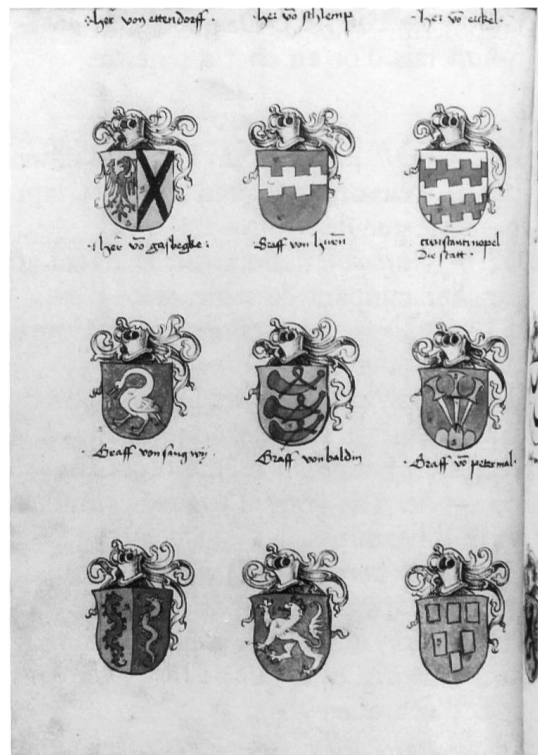 her von ettendorff
her võ schlemp
her võ eckel
her võ gasbegke
Graff von
Constantinopel
Die statt
Graff von sang wÿ
Graff von baldin
Graff võ petzmal